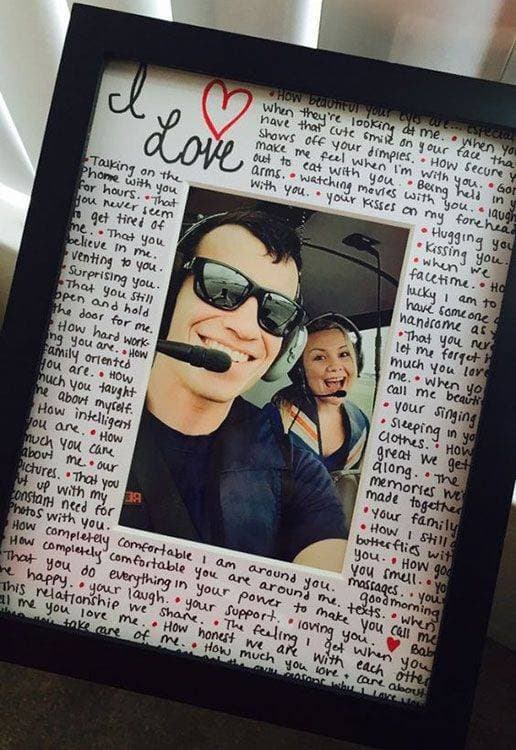 I
Love
• How beautiful your eyes are...
when they're looking at me. • when you
have that cute smile on your face that
shows off your dimples. • How secure y
make me feel when I'm with you. • Goi
out to eat with you. • Being held in y
arms. • watching movies with you. • laugh
with you. • your kisses on my forehead
• Talking on the
phone with you
for hours. • That
you never seem
to get tired of
me. • That you
believe in me.
• venting to you.
• Surprising you.
• That you still
open and hold
the door for me.
• How hard work-
ing you are. • How
family oriented
you are. • How
much you taught
me about myself.
• How intelligent
you are. • How
much you care
about me. • our
pictures. • That you
put up with my
constant need for
photos with you.
• Hugging you
• Kissing you.
• when we
facetime. • Ho
lucky I am to
have someone
handsome as
• That you nev
let me forget h
much you love
me. • when yo
call me beauti
• your singing
• Sleeping in yo
clothes. • How
great we get
along. • The
memories we
made together
• your family
• How I still
butterflies wit
you. • How goo
you smell. • yo
massages. • you
• How completely comfortable I am around you.
How completely comfortable you are around me. texts. • when
goodmorning
• That you do everything in your power to make you call me
be happy. • your laugh. • your support. • loving you. ♥ Bab
This relationship we share. • The feeling I get when you
tell me you love me. • How honest we are with each other
you take care of me. • How much you love + care about
reasons why I love you